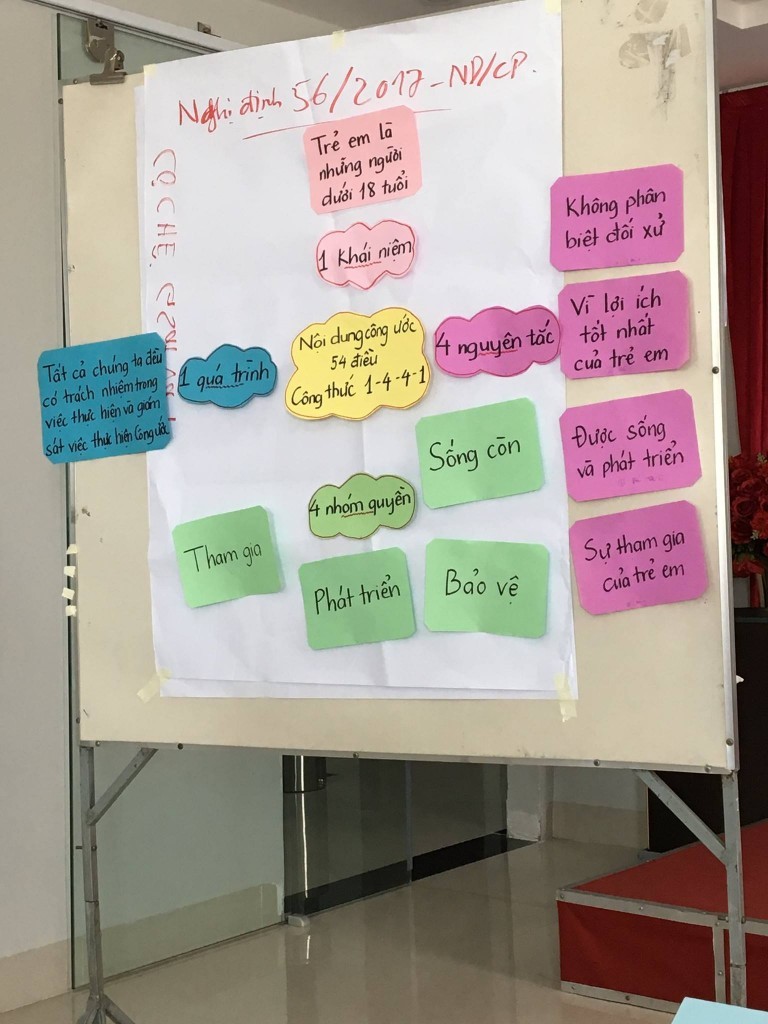 Nghị định 56/2017-NĐ/CP.
Trẻ em là
những người
dưới 18 tuổi
1 Khái niệm
Không phân
biệt đối xử
Vì lợi ích
tốt nhất
của trẻ em
Được sống
và phát triển
Sự tham gia
của trẻ em
4 nguyên tắc
Nội dung công ước
54 điều
Công thức 1-4-4-1
1 quá trình
Tất cả chúng ta đều
có trách nhiệm trong
việc thực hiện và giám
sát việc thực hiện Công ước
4 nhóm quyền
Sống còn
Tham gia
Phát triển
Bảo vệ